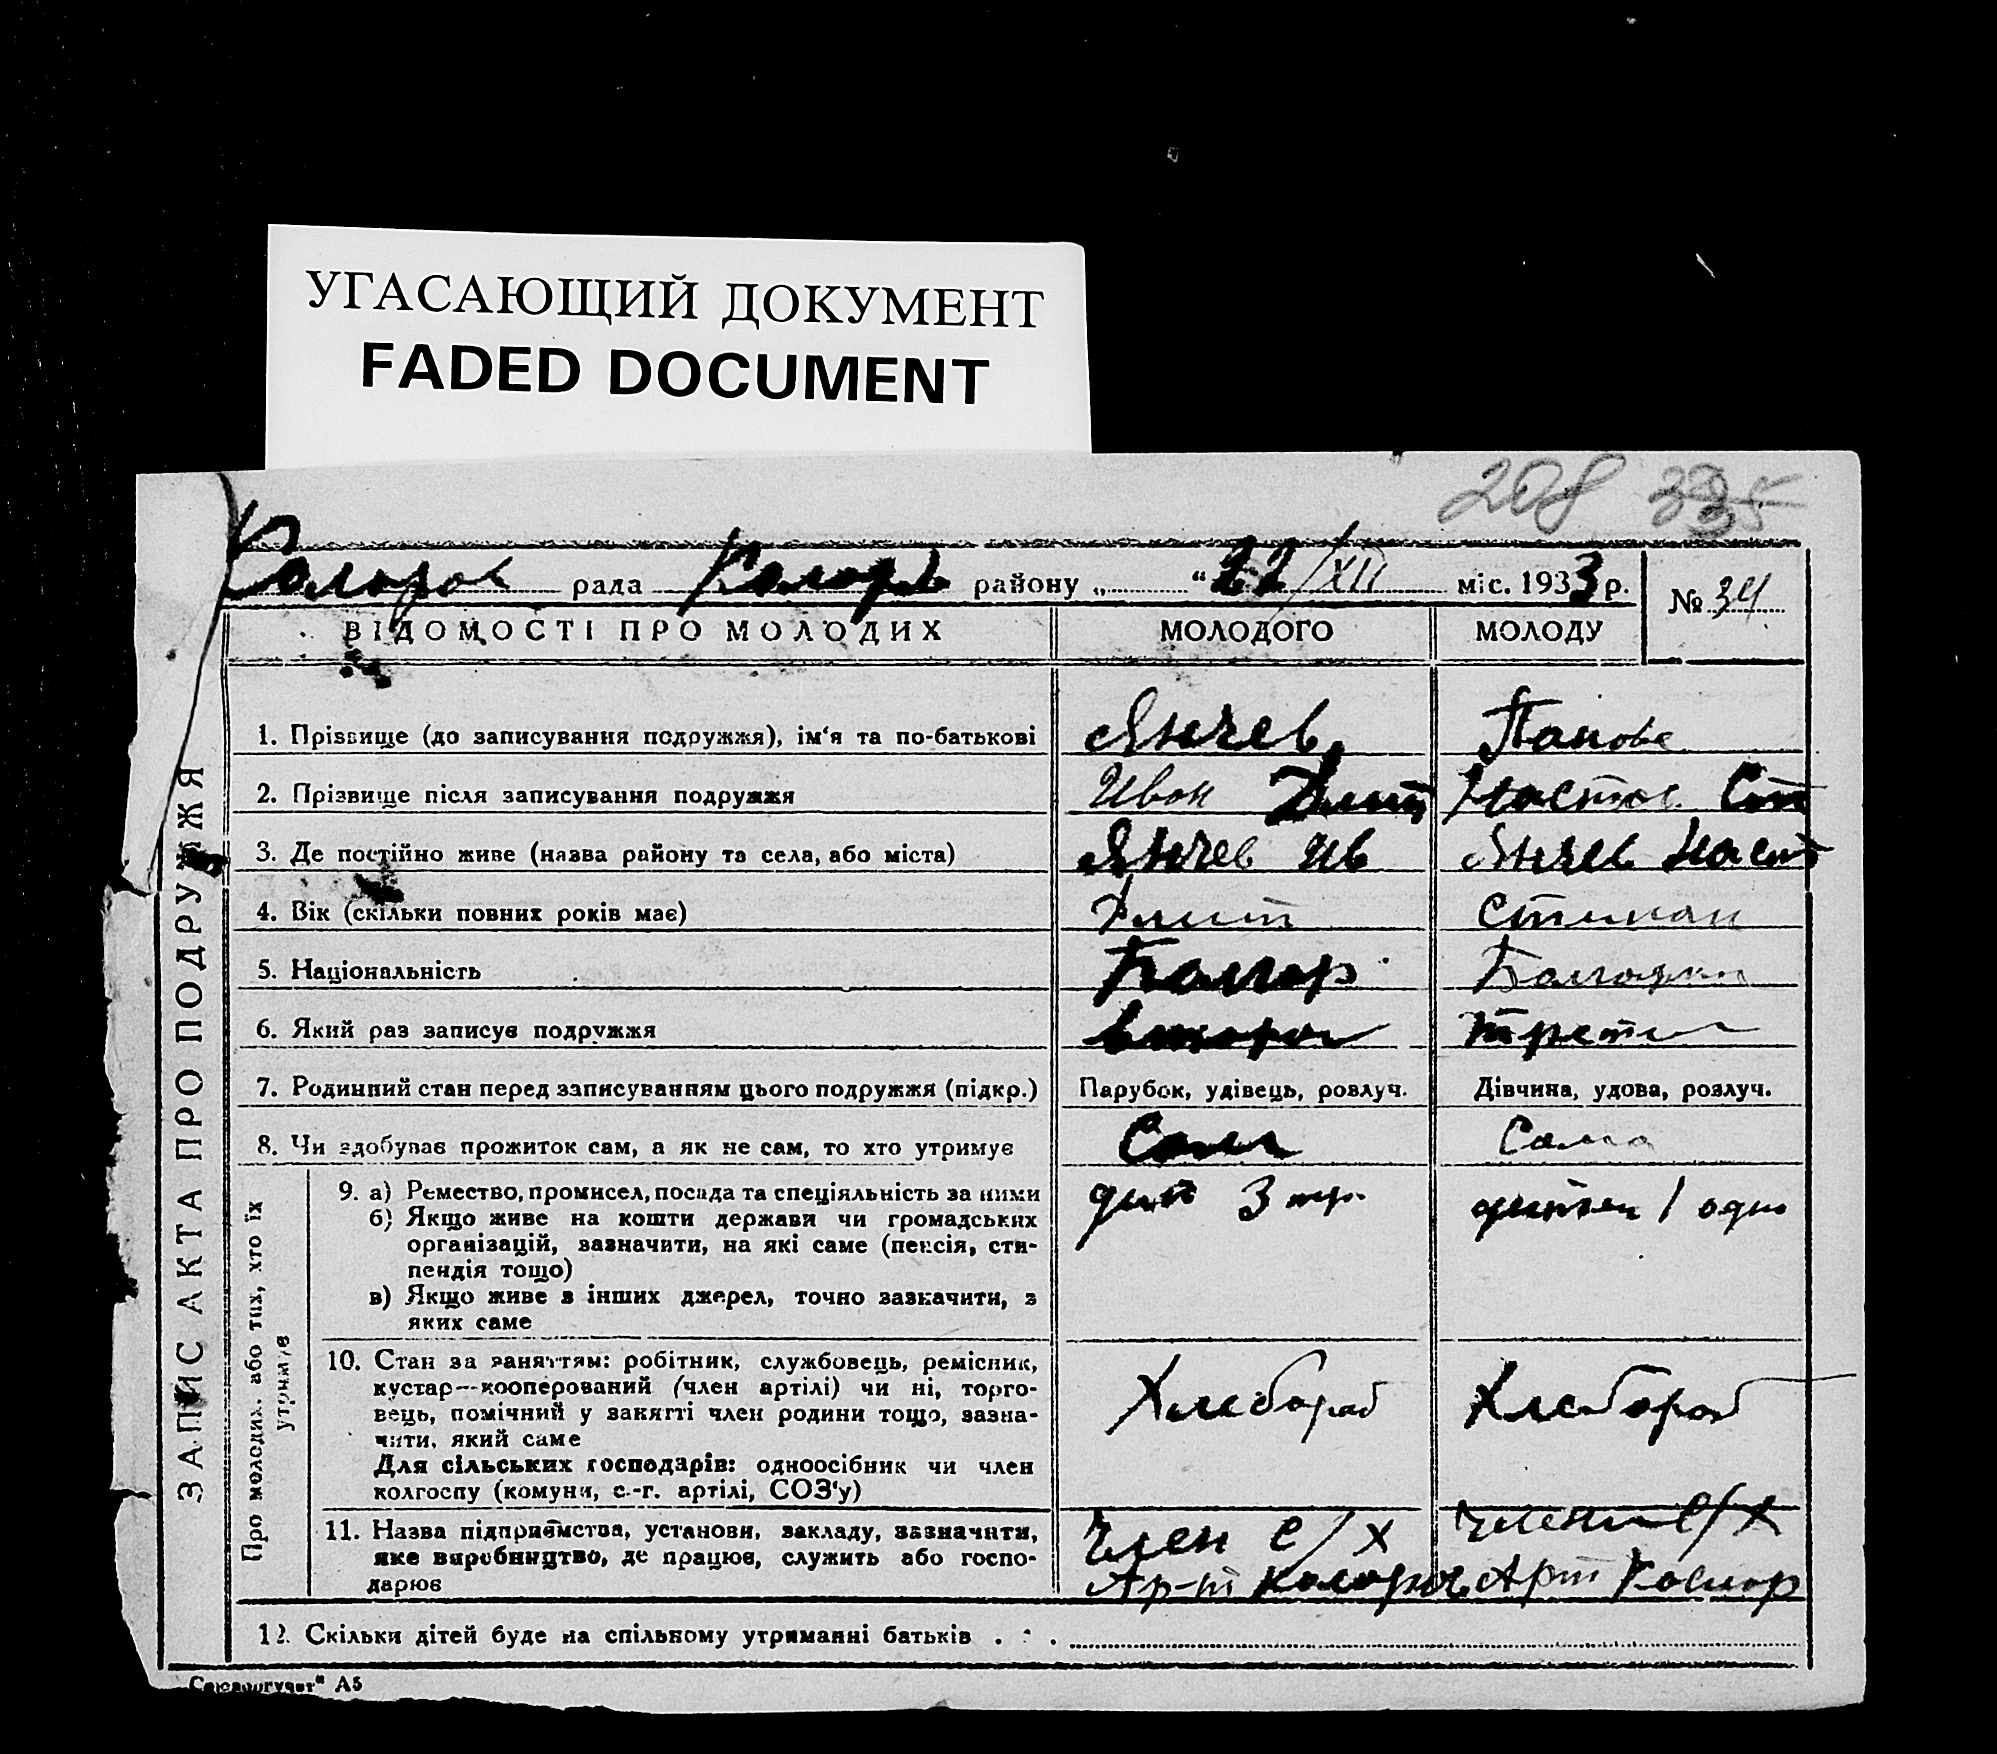 УГАСАЮЩИЙ ДОКУМЕНТ
FADED DOCUMENT
208 335
рада района „ “ 22/XII міс. 1933 р.
№ 34
ВІДОМОСТІ ПРО МОЛОДИХ МОЛОДОГО МОЛОДУ
ЗАПИС АКТА ПРО ПОДРУЖЖЯ
1. Прізвище (до записування подружжя), ім‘я та по-батькові Янчев Панова
2. Прізвище після записування подружжя Иван Дмит Настас Сте
3. Де постійно живе (назва району та села, або міста) Янчев Ив Янчев Наст
4. Вік (скільки повних років має) Дмит Степан
5. Національність Болгар Болгарки
6. Який раз записує подружжя второй трети
7. Родинний стан перед записуванням цього подружжя (підкр.) Парубок, удівець, розлуч. Дівчина, удова, розлуч.
8. Чи здобував прожиток сам, а як не сам, то хто утримує Сам Сама
Про молодих. або тих, хто їх
утримує
9. а) Ремество, промисел, посада та спеціяльність за ними дит 3 тр. 1 одно
б) Якщо живе на кошти держави чи громадських
організацій, зазначити, на які саме (пенсія, сти-
пендія тощо)
в) Якщо живе з інших джерел, точно зазначити, з
яких саме
10. Стан за заняттям: робітник, службовець, ремісник,
кустар—кооперований (член артілі) чи ні, торго-
вець, помічний у занятті член родини тощо, зазна-
чити, який саме Хлебороб Хлебороб
Для сільських господарів: одноосібник чи член
колгоспу (комуни, с.-г. артілі, СОЗ‘у)
11. Назва підприємства, установи, закладу, зазначити, Член с/х с/х
яке виробництво, де працює, служить або госпо- Ар-т Арт
дарює
12. Скільки дітей буде на спільному утриманні батьків . . .
А5